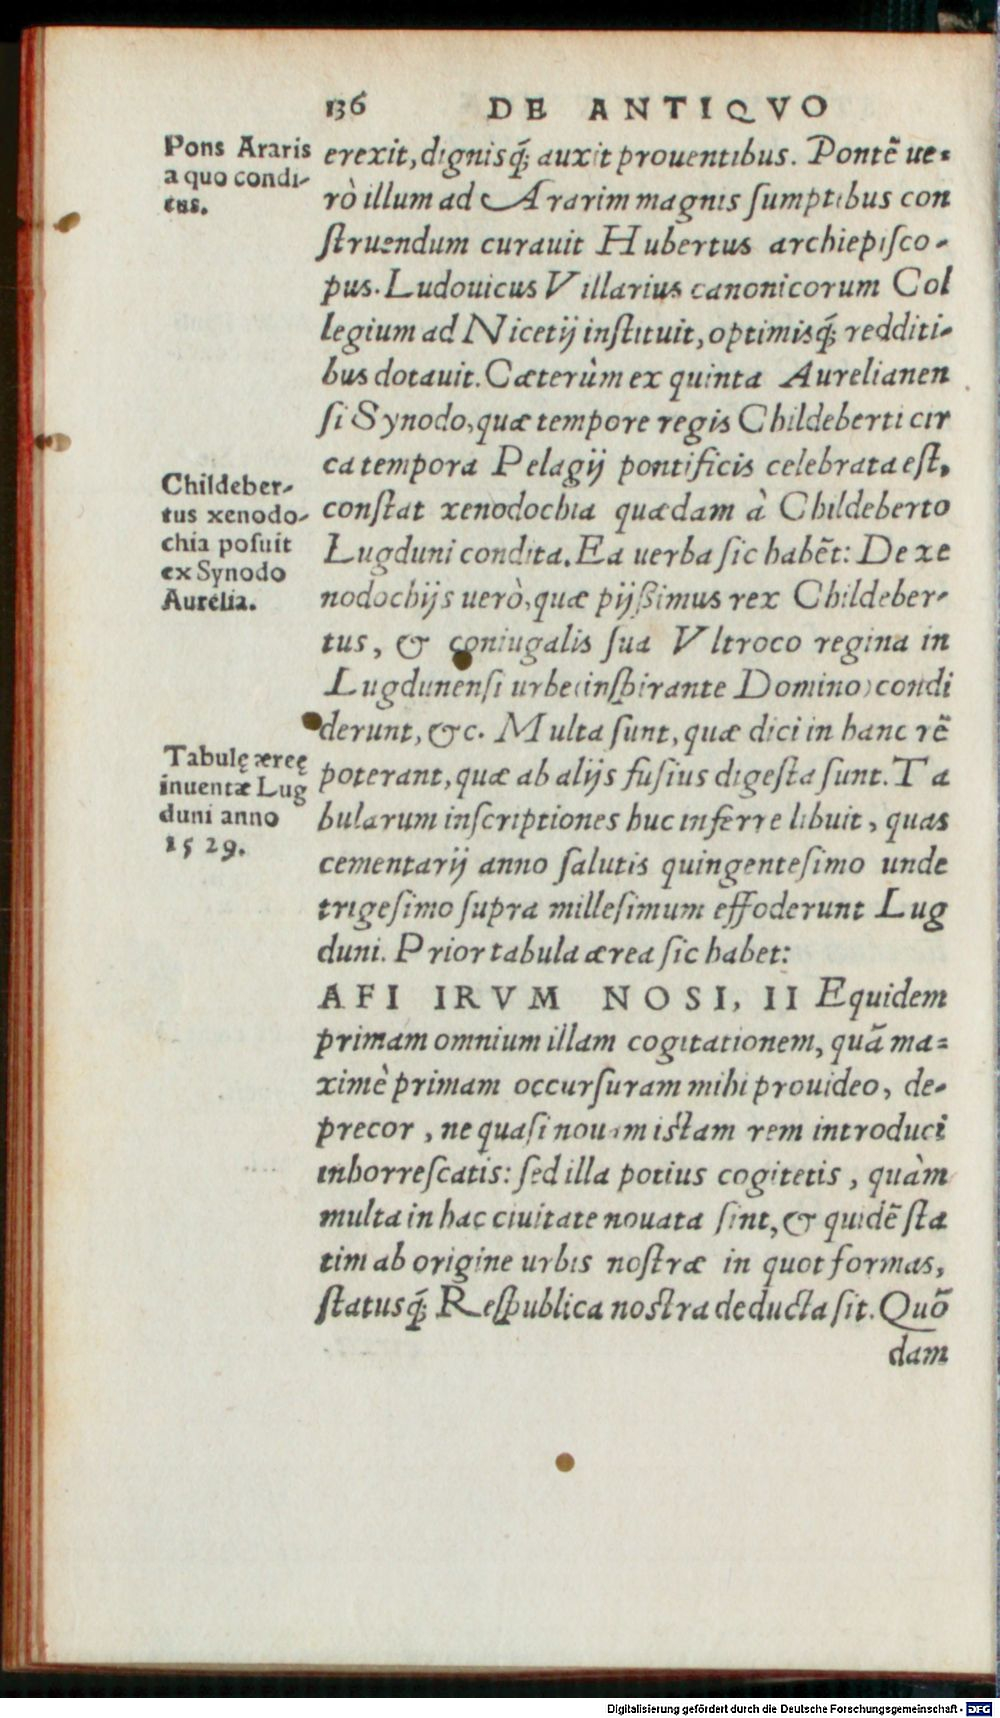 136 DE ANTIQVO
Pons Araris
a quo condi-
tus.
erexit, dignisq́; auxit prouentibus. Pontē ue-
rò illum ad Ararim magnis ſumptibus con
ſtruendum curauit Hubertus archiepiſco-
pus. Ludouicus Villarius canonicorum Col
legium ad Nicetij inſtituit, optimisq́; redditi-
bus dotauit. Cæterùm ex quinta Aurelianen
ſi Synodo, quæ tempore regis Childeberti cir
ca tempora Pelagij pontificis celebrata eſt,
Childeber-
tus xenodo-
chia poſuit
ex Synodo
Aurelia.
conſtat xenodochia quædam à Childeberto
Lugduni condita. Ea uerba ſic habēt: De xe
nodochijs uerò, quæ pijßimus rex Childeber-
tus, & coniugalis ſua Vltroco regina in
Lugdunenſi urbe (inſpirante Domino) condi
derunt, &c. Multa ſunt, quæ dici in hanc rē
Tabulę æreę
inuentæ Lug
duni anno
1529.
poterant, quæ ab alijs fuſius digeſta ſunt. Ta
bularum inſcriptiones huc inferre libuit, quas
cementarij anno ſalutis quingenteſimo unde
trigeſimo ſupra milleſimum effoderunt Lug
duni. Prior tabula ærea ſic habet:
AFI IRVM NOSI, II Equidem
primam omnium illam cogitationem, quā ma-
ximè primam occurſuram mihi prouideo, de-
precor, ne quaſi nouam iſtam rem introduci
inhorreſcatis: ſed illa potius cogitetis, quàm
multa in hac ciuitate nouata ſint, & quidē ſta
tim ab origine urbis noſtræ in quot formas,
ſtatusq́; Reſpublica noſtra deducta ſit. Quō
dam
Digitalisierung gefördert durch die Deutsche Forschungsgemeinschaft - DFG